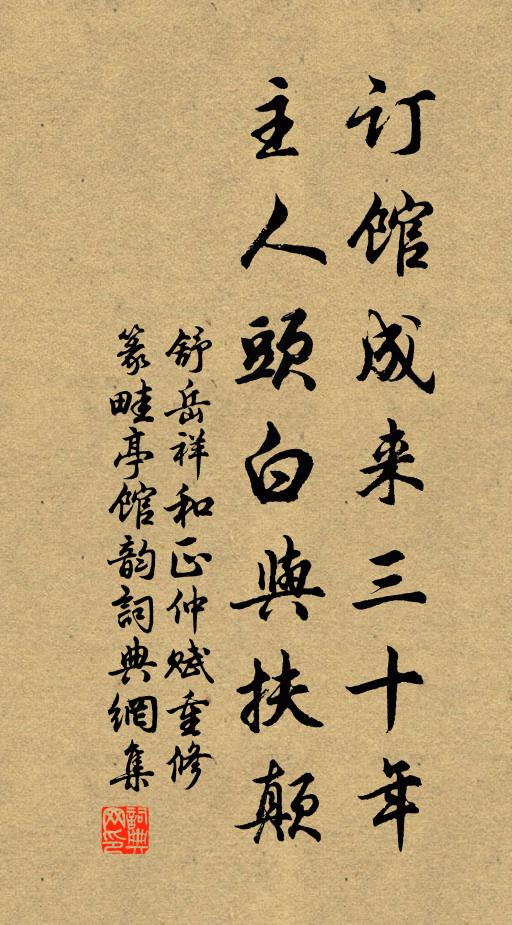 订馆成来三十年
主人頭白與扶顛
舒岳祥和正仲赋重修
篆畦亭馆韵詞典網集
詞典网印